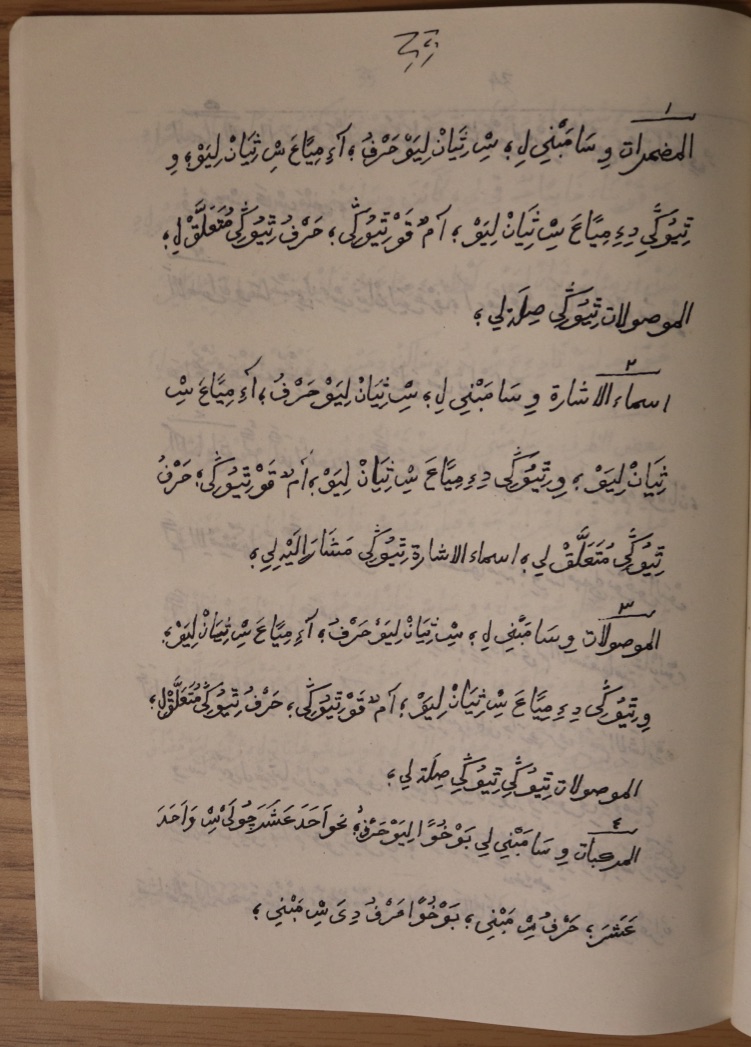 ١
المضمرات وِ سَا مَبْنِي لِ؛ سْ ثِيَانْ لِيَوْ حَرْفُ؛ آءِ مِيَّاعَ سْ ثِيَانْ لِيَوْ؛ وِ
ثِيُوكِّي دِءِ مِيَّاعَ سْ ثِيَانْ لِيَوْ؛ اَمْ قَوْ ثِيُوكِّى؛ حَرْفُ ثِيُوكِّى مُتَعَلَّقْ لِ؛
الموصولات ثِيُوكِّي صِلَة لِي؛
٢
اسماء الاشارة وِ سَا مَبْنِي لِ؛ سْ ثِيَانْ لِيَوْ حَرْفُ؛ آءِ مِيَّاعَ سْ
ثِيَانْ لِيَوْ؛ وِ ثِيُوكِّى دِءِ مِيَّاعَ سْ ثِيَانْ لِيَوْ؛ اَمْ قَوْ ثِيُوكِّى؛ حَرْفُ
ثِيُوكِّى مُتَعَلَّقْ لِي؛ اسماء الاشارة ثِيُوكِّى مَشَارَ اِلَيْهِ لِي؛
٣
الموصولات وِ سَا مَبْنِي لِ؛ سْ ثِيَانْ لِيَوْ حَرْفُ؛ آءِ مِيَّاعَ سْ ثِيَانْ لِيَوْ؛
وِ ثِيُوكِّى دِءِ مِيَّاعَ سْ ثِيَانْ لِيَوْ؛ اَمْ قَوْ ثِيُوكِّى؛ حَرْفُ ثِيُوكِّى مُتَعَلَّقْ لِ؛
الموصولات ثِيُوكِّي ثِيُوكِّي صِلَة لِي؛
٤
المركبات وِ سَا مَبْنِي لِي بَوْ خُوًا لِيَوْ حَرْفُ؛ نحو اَحَدَ عَشَرَ جُولَيْ سْ وَاَحَدَ
عَشَرَ؛ حَرْفُ سْ مَبْنِي؛ بَوْ خُوًا حَرْفُ دِىَ سْ مَبْنِي؛